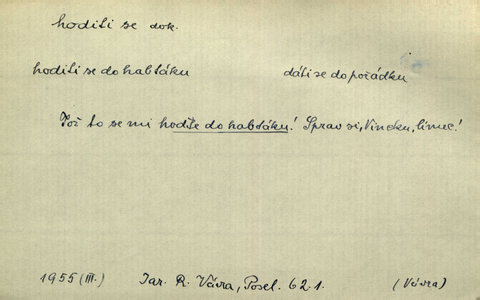 hoditi se dok.
hoditi se do habtáku dáti se do pořádku
Toť to se mi hoďte do habtáku! Sprav si, Vincku, límec!
1955 (III.) Jar. R. Vávra, Posel. 62.1. (Vávra)